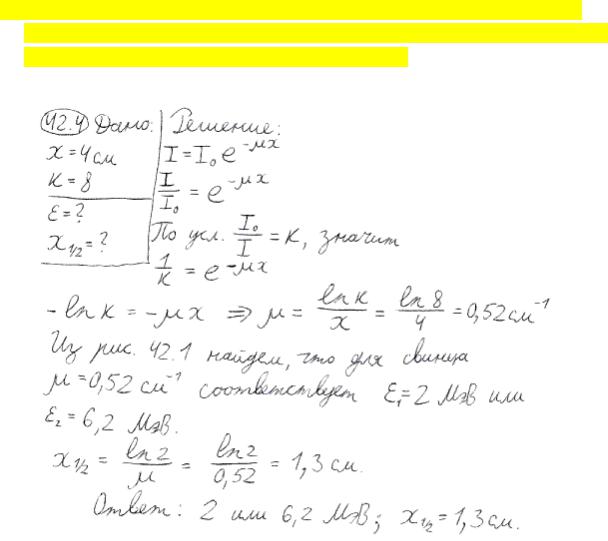 42.4 Дано: Решение:
x = 4 см I = I₀ e^-μx
K = 8 I/I₀ = e^-μx
ε = ? По усл. I₀/I = K, значит
x₁/₂ = ? 1/K = e^-μx
- ln K = - μx ⇒ μ = ln K / x = ln 8 / 4 = 0,52 см⁻¹
Из рис. 42.1 найдем, что для свинца
μ = 0,52 см⁻¹ соответствует ε₁ = 2 МэВ или
ε₂ = 6,2 МэВ.
x₁/₂ = ln 2 / μ = ln 2 / 0,52 = 1,3 см.
Ответ: 2 или 6,2 МэВ; x₁/₂ = 1,3 см.